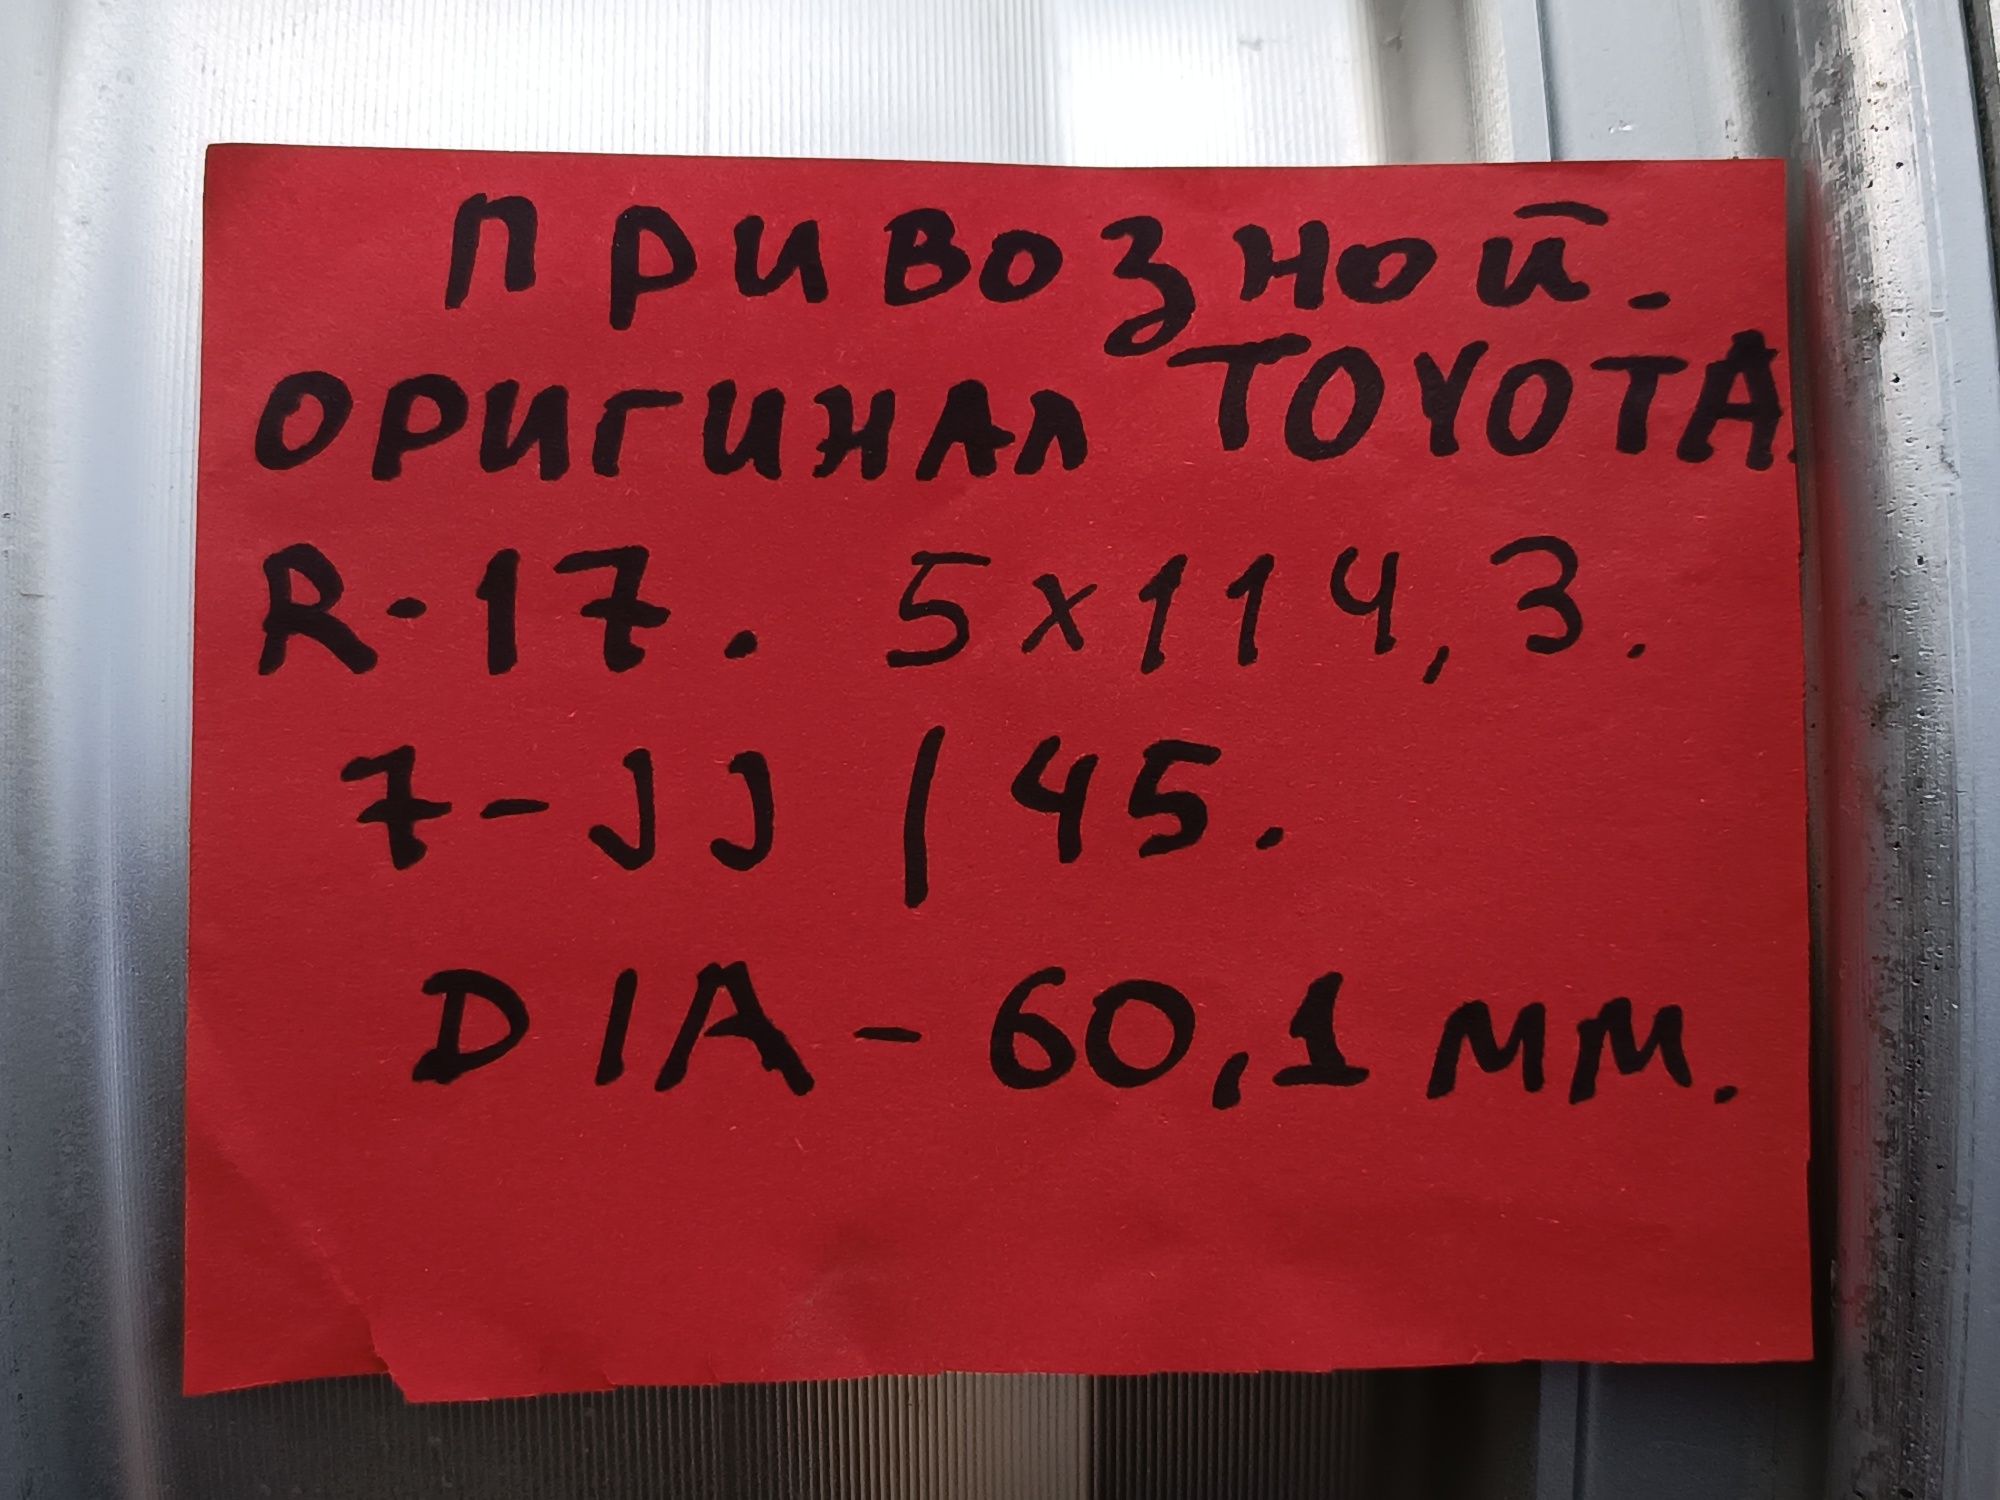 Привозной.
ОРИГИНАЛ TOYOTA.
R-17. 5x114,3.
7-JJ / 45.
DIA - 60,1 мм.